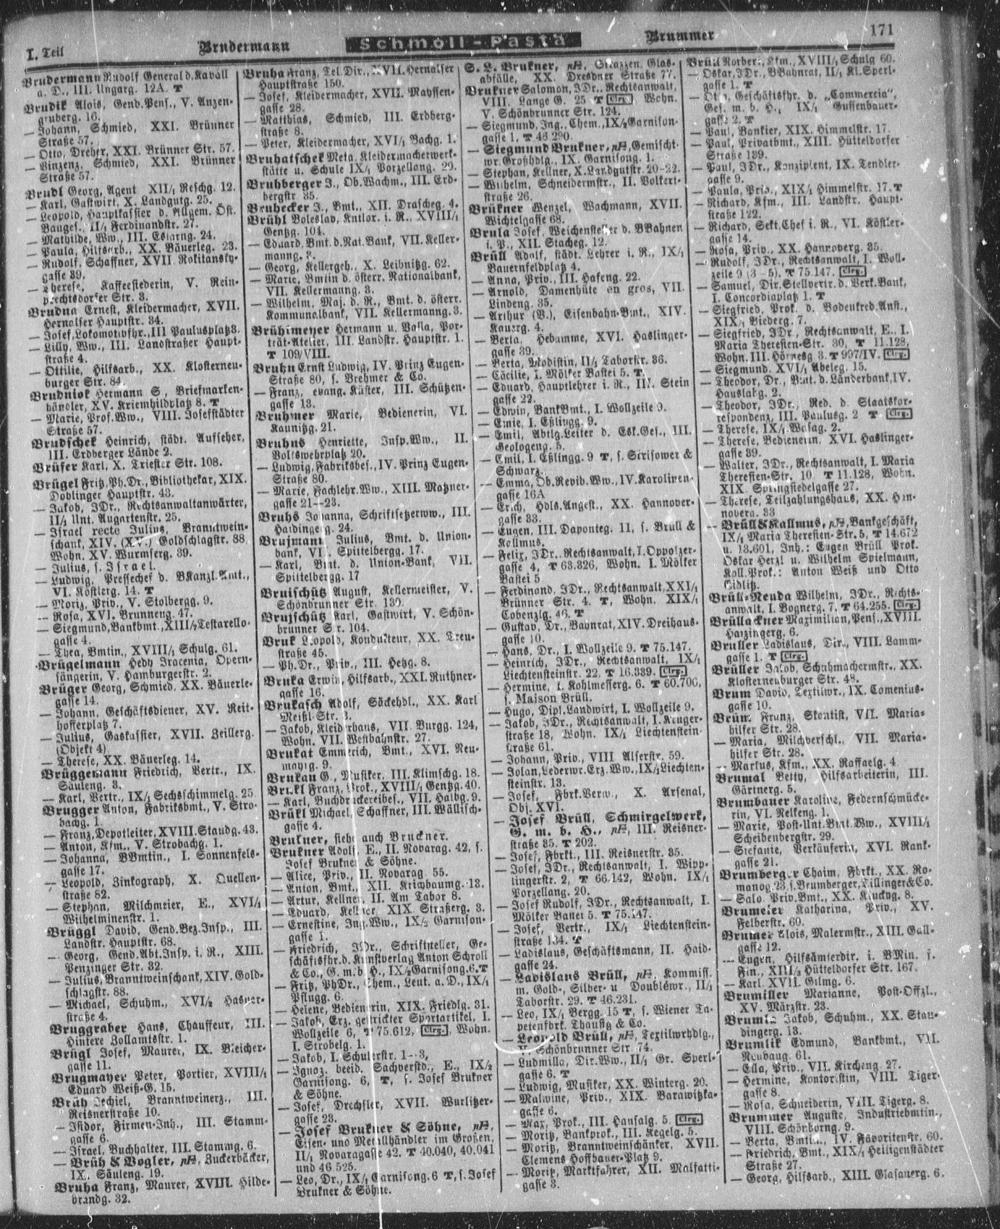 I. Teil
Brudermann
Schmoll-Pasta
Brummer
171
Brudermann Rudolf General d. Kavall
a. D., III. Ungarg. 12A. T
Brudik Alois, Gend.Pens., V. Anzen-
gruberg. 16.
— Johann, Schmied, XXI. Brünner
Straße 57.
— Otto, Dreher, XXI. Brünner Str. 57.
— Vinzenz, Schmied, XXI. Brünner
Straße 57.
Brudl Georg, Agent XII/1 Reschg. 12.
— Karl, Gastwirt, X. Landgutg. 25.
— Leopold, Hauptkassier d. Allgem. Öst.
Bauges., II/1 Ferdinandstr. 27.
— Mathilde, Ww., III. Eslarng. 24.
— Paula, Hilfsarb., XX. Bäuerleg. 23.
— Rudolf, Schaffner, XVII. Rokitansky-
gasse 39.
— Therese, Kaffeesiederin, V. Rein-
prechtsdorfer Str. 3.
Brudna Ernest, Kleidermacher, XVII.
Hernalser Hauptstr. 34.
— Josef, Lokomotivfhr., III Paulusplatz 3.
— Lilly, Ww., III. Landstraßer Haupt-
straße 4.
— Ottilie, Hilfsarb., XX. Klosterneu-
burger Str. 84.
Brudniok Hermann S., Briefmarken-
händler, XV. Kriemhildplatz 8. T
— Marie, Prof.Ww., VIII. Josefstädter
Straße 57.
Brudschek Heinrich, städt. Aufseher,
III. Erdberger Lände 2.
Brüfer Karl, X. Triester Str. 108.
Brügel Fritz, Ph.Dr., Bibliothekar, XIX.
Döblinger Hauptstr. 43.
— Jakob, JDr., Rechtsanwaltanwärter,
II/1 Unt. Augartenstr. 25.
— Israel recte Julius, Branntwein-
schank, XIV. (XV.) Goldschlagstr. 88.
Wohn. XV. Wurmserg. 39.
— Julius, s. Israel.
— Ludwig, Pressechef d. BKanzl.Amt.,
VI. Köstlerg. 14. T
— Moriz, Priv., V. Stolbergg. 9.
— Rosa, XVI. Brunneng. 47.
— Siegmund, Bankbmt., XIII/2 Testarello-
gasse 4.
— Thea, Bmtin., XVIII/1 Schulg. 61.
Brügelmann Hedy Iracenia, Opern-
sängerin, V. Hamburgerstr. 2.
Brüger Georg, Schmied, XX. Bäuerle-
gasse 14.
— Johann, Geschäftsdiener, XV. Reit-
hofferplatz 7.
— Julius, Gaskassier, XVII. Zeillerg.
(Objekt 4)
— Therese, XX. Bäuerleg. 14.
Brüggemann Friedrich, Vertr., IX.
Säuleng. 3.
— Karl, Vertr., IX/1 Sechsschimmelg. 25.
Brugger Anton, Fabriksbmt., V. Stro-
bachg. 1.
— Franz, Depotleiter, XVIII. Staudg. 43.
— Anton, Kfm., V. Strobachg. 1.
— Johanna, BBmtin., I. Sonnenfels-
gasse 17.
— Leopold, Zinkograph, X. Quellen-
straße 82.
— Stephan, Milchmeier, E., XVI/1
Wilhelminenstr. 1.
Brüggl David, Gend.Bez.Insp., III.
Landstr. Hauptstr. 68.
— Georg, Gend.Abt.Insp. i. R., XIII.
Penzinger Str. 32.
— Julius, Branntweinschank, XIV. Gold-
schlagstr. 88.
— Michael, Schuhm., XVI/2 Hasner-
straße 4.
Bruggraber Hans, Chauffeur, III.
Hintere Zollamtsstr. 1.
Brügl Josef, Maurer, IX. Bleicher-
gasse 11.
Brugmayer Peter, Portier, XVIII/1
Eduard Weiß-G. 15.
Brüh Jechiel, Branntweinerz., III.
Reisnerstraße 10.
— Isidor, Firmen-Inh., III. Stamm-
gasse 6.
— Israel, Buchhalter, III. Stammg. 6.
— Brüh & Vogler, Zuckerbäcker,
IX. Säuleng. 19.
Bruha Franz, Maurer, XVIII. Hilde-
brandg. 32.
Bruha Franz, Tel.Dir., XVII. Hernalser
Hauptstraße 150.
— Josef, Kleidermacher, XVII. Mayssen-
gasse 28.
— Matthias, Schmied, III. Erdberg-
straße 8.
— Peter, Kleidermacher, XVI/1 Bachg. 1.
Bruhatschek Meta, Kleidermacherwerk-
stätte u. Schule IX/1 Porzellang. 29.
Bruhberger J., Ob.Wachm., III. Erd-
bergstr. 85.
Brubecker J., Bmt., XII. Draschég. 4.
Brühl Boleslav, Kntlor. i. R., XVIII/1
Gentzg. 104.
— Eduard, Bmt. d. Nat.Bank, VII. Keller-
manng. 3.
— Georg, Kellergeh., X. Leibnitzg. 62.
— Marie, Bmtin d. österr. Nationalbank,
VII. Kellermanng. 3.
— Wilhelm, Maj. d. R., Bmt. d. österr.
Kommunalbank, VII. Kellermanng. 3.
Brühlmeyer Hermann u. Volla, Por-
trät-Atelier, III. Landstr. Hauptstr. 1.
T 109/VIII.
Bruhn Ernst Ludwig, IV. Prinz Eugen-
Straße 80, s. Brehmer & Co.
— Franz, evang. Küster, III. Schützen-
gasse 13.
Bruhner Marie, Bedienerin, VI.
Kaunitzg. 21.
Bruhns Henriette, Insp.Ww., II.
Volkswehrplatz 20.
— Ludwig, Fabriksbes., IV. Prinz Eugen-
Straße 80.
— Marie, Fachlehr.Ww., XIII. Matzner-
gasse 21—23.
Bruhs Johanna, Schriftsetzerww., III.
Haidingerg. 24.
Brujmann Julius, Bmt. d. Union-
bank, VI. Spittelbergg. 17.
— Karl, Bmt. d. Union-Bank, VII.
Spittelbergg. 17
Bruischütz August, Kellermeister, V.
Schönbrunner Str. 130.
Brujschütz Karl, Gastwirt, V. Schön-
brunner Str. 104.
Bruk Leopold, Kondukteur, XX. Treu-
straße 45.
— Ph.Dr., Priv., III. Hetzg. 8.
Bruka Erwin, Hilfsarb., XXI. Ruthner-
gasse 16.
Brukasch Adolf, Säckehdl., XX. Karl
Meißl-Str. 3.
— Jakob, Kleiderhaus, VII. Burgg. 124,
Wohn. VII. Westbahnstr. 27.
Brukat Emmerich, Bmt., XVI. Neu-
mayrg. 9.
Brukau G., Musiker, III. Klimschg. 18.
Brükl Franz, Prok., XVIII/1 Gentzg. 40.
— Karl, Buchdruckereibes., VII. Halbg. 9.
Brükl Michael, Schaffner, III. Wällisch-
gasse 4.
Brukner, siehe auch Bruckner.
Brukner Adolf, E., II. Novarag. 42, s.
Josef Brukner & Söhne.
— Alice, Priv., II. Novarag. 55.
— Anton, Bmt., XII. Krichbaumg. 13.
— Artur, Kellner, II. Am Tabor 8.
— Eduard, Kellner, XIX. Straßerg. 3.
— Ernestine, Ing.Ww., IX/2 Garnison-
gasse 1.
— Friedrich, JDr., Schriftsteller, Ge-
schäftsfhr. d. Kunstverlag Anton Schroll
& Co., G. m. b. H., IX/2 Garnisong. 6. T
— Fritz, PhDr., Chem., Leut. a. D., IX/1
Pflugg. 6.
— Helene, Bedienerin, XIX. Friedlg. 31.
— Jakob, Erz. getrickter Sportartikel, I.
Wollzeile 6, T 75.612, Clrg. Wohn.
I. Strobelg. 1.
— Jakob, I. Schulerstr. 1—3,
— Ignaz, beeid. Sachverstd., E., IX/2
Garnisong. 6, T, s. Josef Brukner
& Söhne.
— Josef, Drechsler, XVII. Wurlitzer-
gasse 23.
— Josef Brukner & Söhne,
Eisen- und Metallhändler im Großen,
II/1 Novaragasse 42. T 40.040, 40.041
und 46.525.
— Leo, Dr., IX/1 Garnisong. 6 T, s. Josef
Brukner & Söhne.
S. L. Brukner, Glas-
abfälle, XX. Dresdner Straße 77.
Brukner Salomon, JDr., Rechtsanwalt,
VIII. Lange G. 25 T Clrg. Wohn.
V. Schönbrunner Str. 124.
— Siegmund, Ing., Chem., IX/2 Garnison-
gasse 1. T 46.290.
— Siegmund Brukner, Gemischt-
wr. Großhdlg., IX. Garnisong. 1.
— Stephan, Kellner, X. Landgutstr. 20—22.
— Wilhelm, Schneidermstr., II. Volkert-
straße 26.
Brükner Wenzel, Wachmann, XVII.
Wichtelgasse 68.
Brula Josef, Weichensteller d. BBahnen
i. P., XII. Stachég. 12.
Brüll Adolf, städt. Lehrer i. R., IX/1
Bauernfeldplatz 4.
— Anna, Priv., III. Hafeng. 22.
— Arnold, Damenhüte en gros, VII.
Lindeng. 35.
— Arthur (B.), Eisenbahn-Bmt., XIV.
Kauerg. 4.
— Berta, Hebamme, XVI. Haslinger-
gasse 39.
— Berta, Modistin, II/1 Taborstr. 36.
— Cäcilie, I. Mölker Bastei 5. T
— Eduard, Hauptlehrer i. R., III. Stein
gasse 22.
— Edwin, BankBmt., I. Wollzeile 9.
— Emie, I. Eßlingg. 9.
— Emil, Abtlg.Leiter d. Esk.Ges., III.
Geologeng. 5.
— Emil, I. Eßlingg. 9 T, s. Strisower &
Schwarz.
— Emma, Ob.Revid.Ww., IV. Karolinen-
gasse 16A
— Erich, Hdls.Angest., XX. Hannover-
gasse 33.
— Eugen, III. Daponteg. 11, s. Brüll &
Kallmus.
— Felix, JDr., Rechtsanwalt, I. Oppolzer-
gasse 4. T 63.326, Wohn. I. Mölker
Bastei 5
— Ferdinand, JDr., Rechtsanwalt, XXI/1
Brünner Str. 4. T, Wohn. XIX/1
Cobenzlg. 46. T
— Gustav, Dr., Bahnrat, XIV. Dreihaus-
gasse 10.
— Hans, Dr., I. Wollzeile 9. T 75.147.
— Heinrich, JDr., Rechtsanwalt, IX/1
Liechtensteinstr. 22. T 16.339. Clrg.
— Hermine, I. Kohlmesserg. 6. T 60.700,
s. Maison Brüll.
— Hugo, Dipl.Landwirt, I. Wollzeile 9.
— Jakob, JDr., Rechtsanwalt, I. Kruger-
straße 18, Wohn. IX/1 Liechtenstein-
straße 61.
— Johann, Priv., VIII Alserstr. 59.
— Jolan, Lederwr.Erz.Ww., IX/1 Liechten-
steinstr. 13.
— Josef, Fbrk.Verw., X. Arsenal,
Obj. XVI.
— Josef Brüll, Schmirgelwerk,
G. m. b. H., III. Reisner-
straße 35. T 202.
— Josef, Fbrkt., III. Reisnerstr. 35.
— Josef, JDr., Rechtsanwalt, I. Wipp-
lingerstr. 2, T 66.142, Wohn. IX/1
Porzellang. 20.
— Josef Rudolf, JDr., Rechtsanwalt, I.
Mölker Bastei 5. T 75.147.
— Josef, Vertr., IX/1 Liechtenstein-
straße 134. T
— Ladislaus, Geschäftsmann, II. Haid-
gasse 24.
— Ladislaus Brüll, Kommiss.
m. Gold-, Silber- u. Doubléwr., II/1
Taborstr. 29. T 46.231.
— Leo, IX/1 Bergg. 15 T, s. Wiener Ta-
petenfbrk. Thausig & Co.
— Leopold Brüll, Textilwrhdlg.,
V. Schönbrunner Str. 74.
— Ludmilla, Dir.Ww., II/1 Gr. Sperl-
gasse 6. T
— Ludwig, Musiker, XX. Winterg. 20.
— Malwine, Priv., XIX. Barawitzka-
gasse 6.
— Max, Prok., III. Hansalg. 5. Clrg.
— Moritz, Bankprok., III. Kegelg. 5.
— Moritz, Branntweinschänker, XVII.
Clemens Hoffbauer-Platz 9.
— Moritz, Marktfahrer, XII. Malfatti-
gasse 3.
Brüll Norbert, Kfm., XVIII/1 Schulg. 60.
— Oskar, JDr., BBahnrat, II/1 Kl. Sperl-
gasse 1. T
— Otto, Geschäftsfhr. d. „Commercia",
Ges. m. b. H., IX/4 Gussenbauer-
gasse 2. T
— Paul, Bankier, XIX. Himmelstr. 17.
— Paul, Privatbmt., XIII. Hütteldorfer
Straße 139.
— Paul, JDr., Konzipient, IX. Tendler-
gasse 9.
— Paula, Priv., XIX/1 Himmelstr. 17. T
— Richard, Kfm., III. Landstr. Haupt-
straße 122.
— Richard, Sekt.Chef i. R., VI. Köstler-
gasse 14.
— Rosa, Priv., XX. Hannoverg. 35.
— Rudolf, JDr., Rechtsanwalt, I. Woll-
zeile 9 (3—5), T 75.147. Clrg.
— Samuel, Dir.Stellvertr. d. Verk.Bank,
I. Concordiaplatz 1. T
— Siegfried, Prok. d. Bodenkred.Anst.,
XIX/1 Biederg. 7.
— Siegfried, JDr., Rechtsanwalt, E., I.
Maria Theresien-Str. 30, T 11.128,
Wohn. III. Hörnesg. 3. T 997/IV. Clrg.
— Siegmund, XVI/1 Abeleg. 15.
— Theodor, Dr., Bmt. d. Länderbank, IV.
Hauslabg. 2.
— Theodor, JDr., Red. d. Staatskor-
respondenz, III. Paulusg. 2 T Clrg.
— Therese, IX/1 Wasag. 2.
— Therese, Bedienerin, XVI. Haslinger-
gasse 39.
— Walter, JDr., Rechtsanwalt, I. Maria
Theresien-Str. 10. T 11.128, Wohn.
XIX. Springsiedelgasse 27.
— Therese, Teilzahlungshaus, XX. Han-
noverg. 33
— Brüll & Kallmus, Bankgeschäft,
IX/1 Maria Theresien-Str. 5, T 14.672
u. 18.601, Inh.: Eugen Brüll Prok.
Oskar Herzl u. Wilhelm Spielmann,
Koll.Prok.: Anton Weiß und Otto
Giblitz.
Brüll-Renda Wilhelm, JDr., Rechts-
anwalt, I. Bognerg. 7, T 64.255. Clrg.
Brüllacker Maximilian, Pens., XVIII.
Haizingerg. 6.
Bruller Ladislaus, Dir., VIII. Lamm-
gasse 1. T Clrg.
Brüller Jakob, Schuhmachermstr., XX.
Klosterneuburger Str. 48.
Brum David, Textilwr., IX. Comenius-
gasse 10.
Brüm. Franz, Skontist, VII. Maria-
hilfer Str. 28.
— Maria, Milchverschl., VII. Maria-
hilfer Str. 28.
— Markus, Kfm., XX. Raffaelg. 4.
Brumal Betty, Hilfsarbeiterin, III.
Gärtnerg. 5.
Brumbauer Karoline, Federschmücke-
rin, VI. Relkeng. 1.
— Marie, Post-Unt.Bmt.Ww., XVIII/1
Scheibenbergstr. 29.
— Stefanie, Verkäuferin, XVI. Rank-
gasse 21.
Brumberger Chaim, Fbrkt., XX. Ro-
manog. 23, s. Brumberger, Dillinger & Co.
— Salo, Priv.Bmt., XX. Kluckyg. 8.
Brumeier Katharina, Priv., XV.
Felberstr. 60.
Brumer Alois, Malermstr., XIII. Gall-
gasse 12.
— Eugen, Hilfsämterdir. i. BMin. f.
Fin., XIII/1 Hütteldorfer Str. 167.
— Karl, XVII. Gilmg. 6.
Brumiller Marianne, Post-Offzl.,
XV. Märzstr. 23.
Bruml Jakob, Schuhm., XX. Stau-
dingerg. 13.
Brumlik Edmund, Bankbmt., VII.
Neubaug. 61.
— Ella, Priv., VII. Kircheng. 27.
— Hermine, Kontoristin, VIII. Tiger-
gasse 8.
— Rosa, Schneiderin, VIII. Tigerg. 8.
Brummer Auguste, Industriebmtin.,
VIII. Schönborng. 9.
— Berta, Bmtin., IV. Favoritenstr. 60.
— Friedrich, Bmt., XIX/1 Heiligenstädter
Straße 27.
— Georg, Hilfsarb., XIII. Glasauerg. 6.